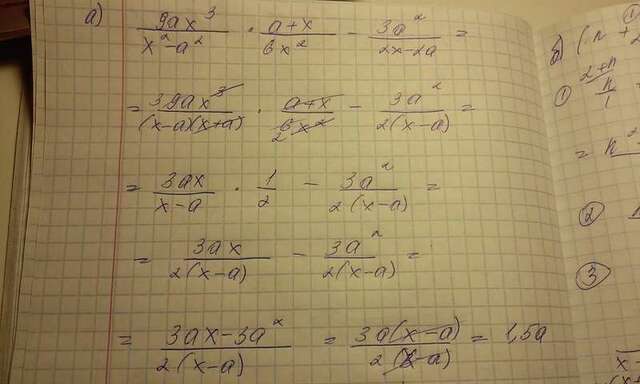 а) 9ax³/(x²-a²) · (a+x)/(6x²) - 3a²/(2x-2a) =
= 3 9ax³/((x-a)(x+a)) · (a+x)/(6x²) 2 - 3a²/(2(x-a)) =
= 3ax/(x-a) · 1/2 - 3a²/(2(x-a)) =
= 3ax/(2(x-a)) - 3a²/(2(x-a)) =
= (3ax-3a²)/(2(x-a)) = 3a(x-a)/(2(x-a)) = 1,5a
б) (n+2
① (2+n)/1
= n
②
③